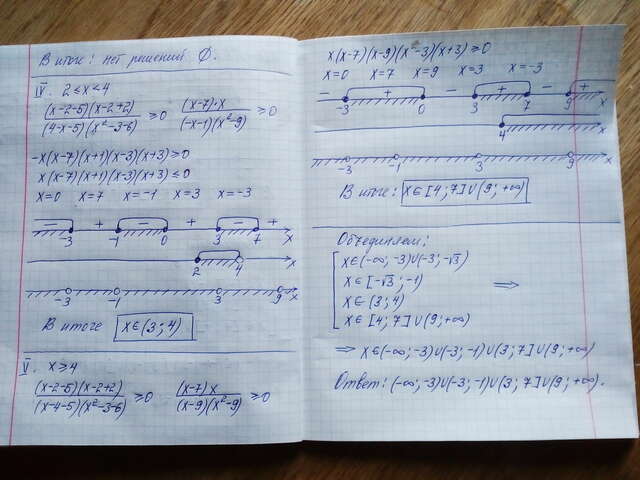 В итоге: нет решений ∅.
IV. 2 ≤ x < 4
(x-2-5)(x-2+2)/(4-x-5)(x²-3-6) ≥ 0   (x-7)·x/(-x-1)(x²-9) ≥ 0
-x(x-7)(x+1)(x-3)(x+3) ≥ 0
x(x-7)(x+1)(x-3)(x+3) ≤ 0
x=0   x=7   x=-1   x=3   x=-3
- + - + - +
-3 -1 0 3 7 x
2 4 x
-3 -1 3 9 x
В итоге x∈(3;4)
V. x ≥ 4
(x-2-5)(x-2+2)/(x-4-5)(x²-3-6) ≥ 0   (x-7)x/(x-9)(x²-9) ≥ 0
x(x-7)(x-9)(x-3)(x+3) ≥ 0
x=0   x=7   x=9   x=3   x=-3
- + - + - +
-3 0 3 7 9 x
4 x
-3 -1 3 9 x
В итоге: x∈[4;7]∪(9;+∞)
Объединяем:
x∈(-∞;-3)∪(-3;-√3)
x∈[-√3;-1)
x∈(3;4)
x∈[4;7]∪(9;+∞)
⟹
⟹ x∈(-∞;-3)∪(-3;-1)∪(3;7]∪(9;+∞)
Ответ: (-∞;-3)∪(-3;-1)∪(3;7]∪(9;+∞).